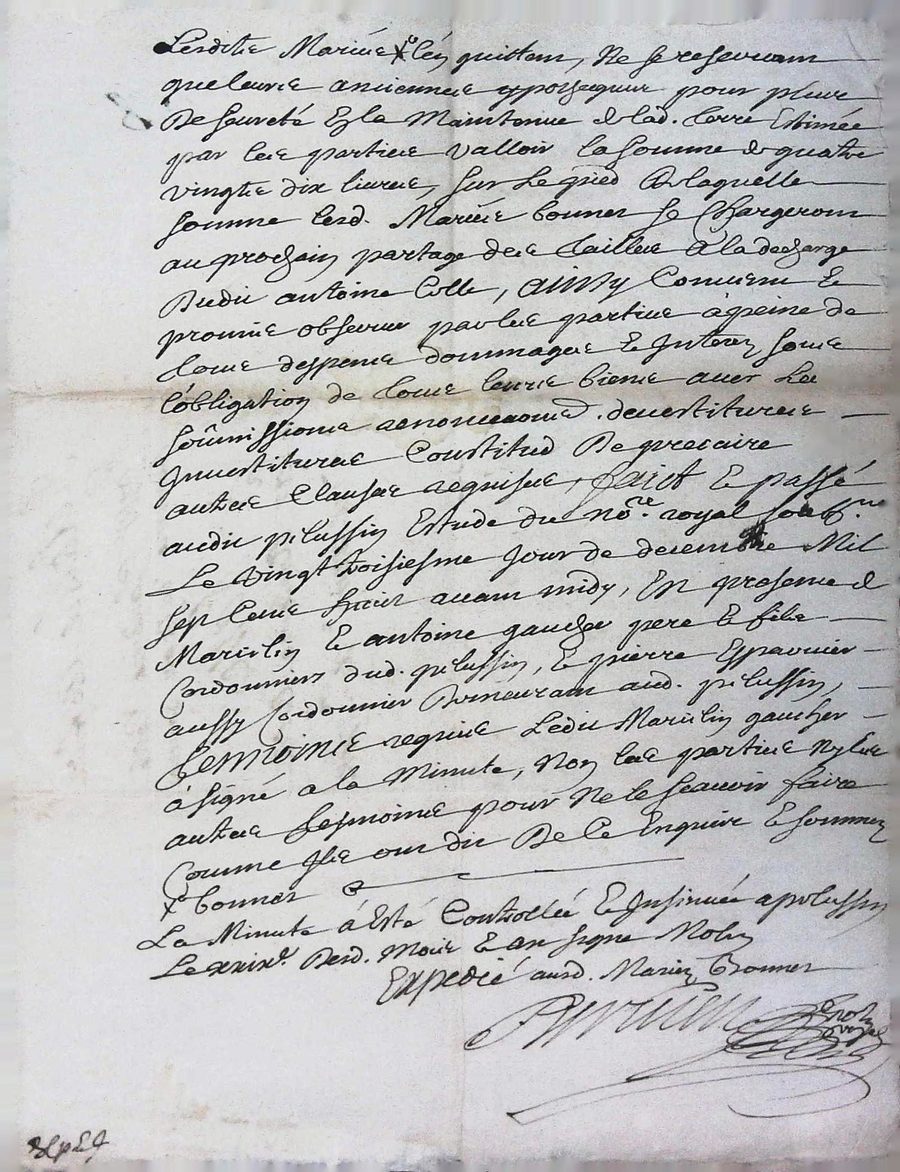 Lesdits Mariés x les quittent, Ne se reservant
que leurs anciennes ypotheques pour plus
De seureté Et la Maintenue de lad. terre Estimée
par les parties valloir la somme de quatre
vingts dix livres, sur Le pied De laquelle
somme lesd. Mariés bonnet se Chargeront
au prochain partage des tailles a la decharge
Dudit antoine Colle, ainsy Convenu Et
promis observer par les parties à peine de
tous despens dommages Et Interetz sous
l'obligation de tous leurs biens avec Les
soûmissions renonciaons. devestitures
Investitures Constitud De precaire
autres Clauses requises, faict Et passé
audit pelussin Estude du no.re royal soub.ne
Le vingt troisiesme jour de decembre Mil
sept Cens huit avant midy, En presence de
Marcelin Et antoine gaucher pere Et fils
Cordonniers dud. pelussin, Et pierre
aussy Cordonnier Demeurant aud. pelussin,
tesmoins requis Ledit Marcelin gaucher
à signé a la Minute, Non les parties Ny les
autres tesmoins pour Ne le sçavoir faire
Comme Ils ont dit De Ce Enquis Et sommez
x bonnet
La Minute à Esté Controllée Et Insinuée a pelussin
Le xxix.e Desd. Mois Et an signe
Expedié ausd. Mariez Bonnet